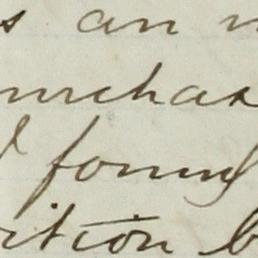 s an
urchas
found
ition b